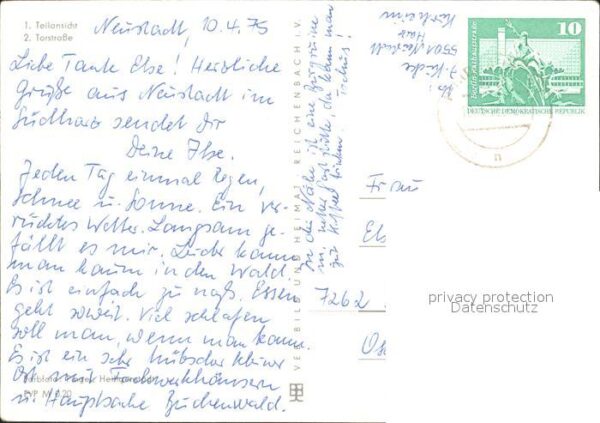 1. Teilansicht
2. Torstraße
Neustadt, 10.4.75
Liebe Tante Else! Herzliche
Grüße aus Neustadt im
Südharz sendet Dir
Deine Ilse.
Jeden Tag einmal Regen,
Schnee u. Sonne. Ein ver-
rücktes Wetter. Langsam ge-
fällt es mir. Leider kann
man kaum in den Wald.
Es ist einfach zu naß. Essen
geht soweit. Viel schlafen
soll man, wenn man kann.
Es ist ein sehr hübscher kleiner
Ort mit Fachwerkhäusern
u. Hauptsache Buchenwald.
In der Nähe ist eine Burgruine
man
VERLAG BILD UND HEIMAT REICHENBACH I. V.
5501 Neustadt
Harz
10
DEUTSCHE DEMOKRATISCHE REPUBLIK
Frau
7262
privacy protection
Datenschutz